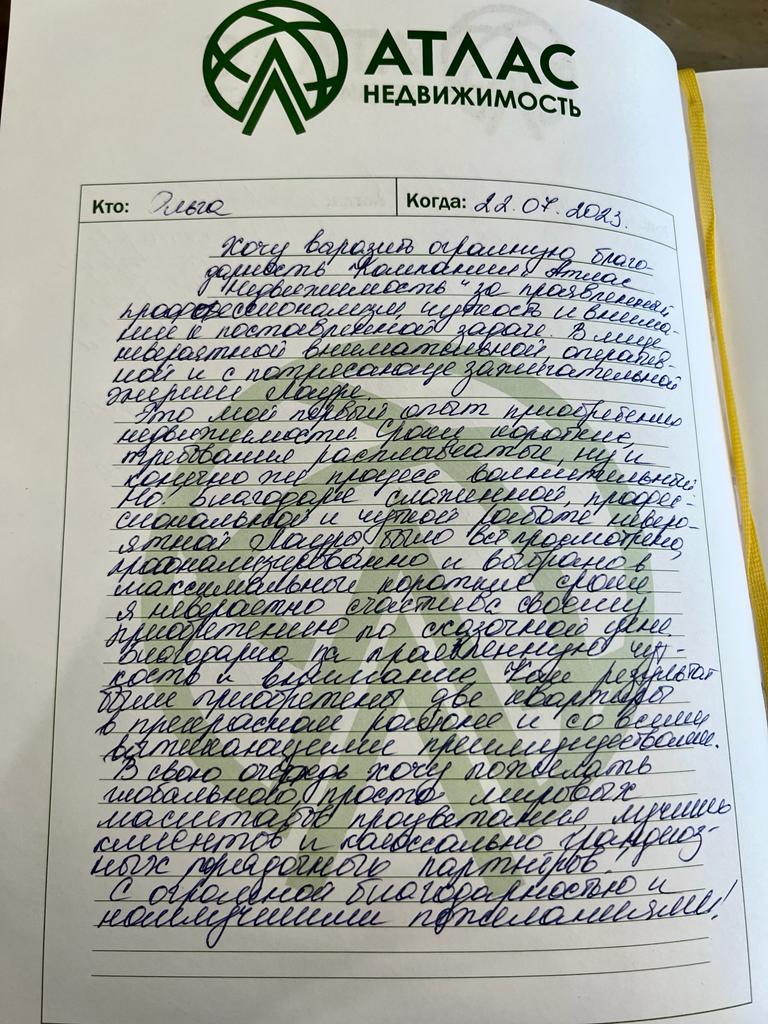 АТЛАС
НЕДВИЖИМОСТЬ
Кто: Ольга
Когда: 22.07.2023.
Хочу варазить огромную благо-
дарность Компании Атлас
"Недвижимость" за проявленный
профессионализм, чуткость и внима-
ние к поставленной задаче. В лице
невероятной внимательной, оператив-
ной и с потрясающе зажигательной
энергией Лауре.
Это мой первый опыт приобретения
недвижимости. Сроки короткие,
требования расплывчатые, ну и
конечно же процесс волнительный.
Но благодаря слаженной, профес-
сиональной и чуткой работе неверо-
ятной Лауры было всё просмотрено,
проанализировано и выбрано в
максимально короткие сроки
я невероятно счастлива своему
приобретению по сказочной цене.
Благодарю за проявленную чут-
кость и внимание. Как результат
были приобретены две квартиры
в прекрасном районе и со всеми
вытекающими преимуществами.
В свою очередь хочу пожелать
глобального, просто мировых
масштабов процветания, лучших
клиентов и колоссально грандиоз-
ных порядочного партнёров.
С огромной благодарностью и
наилучшими пожеланиями!